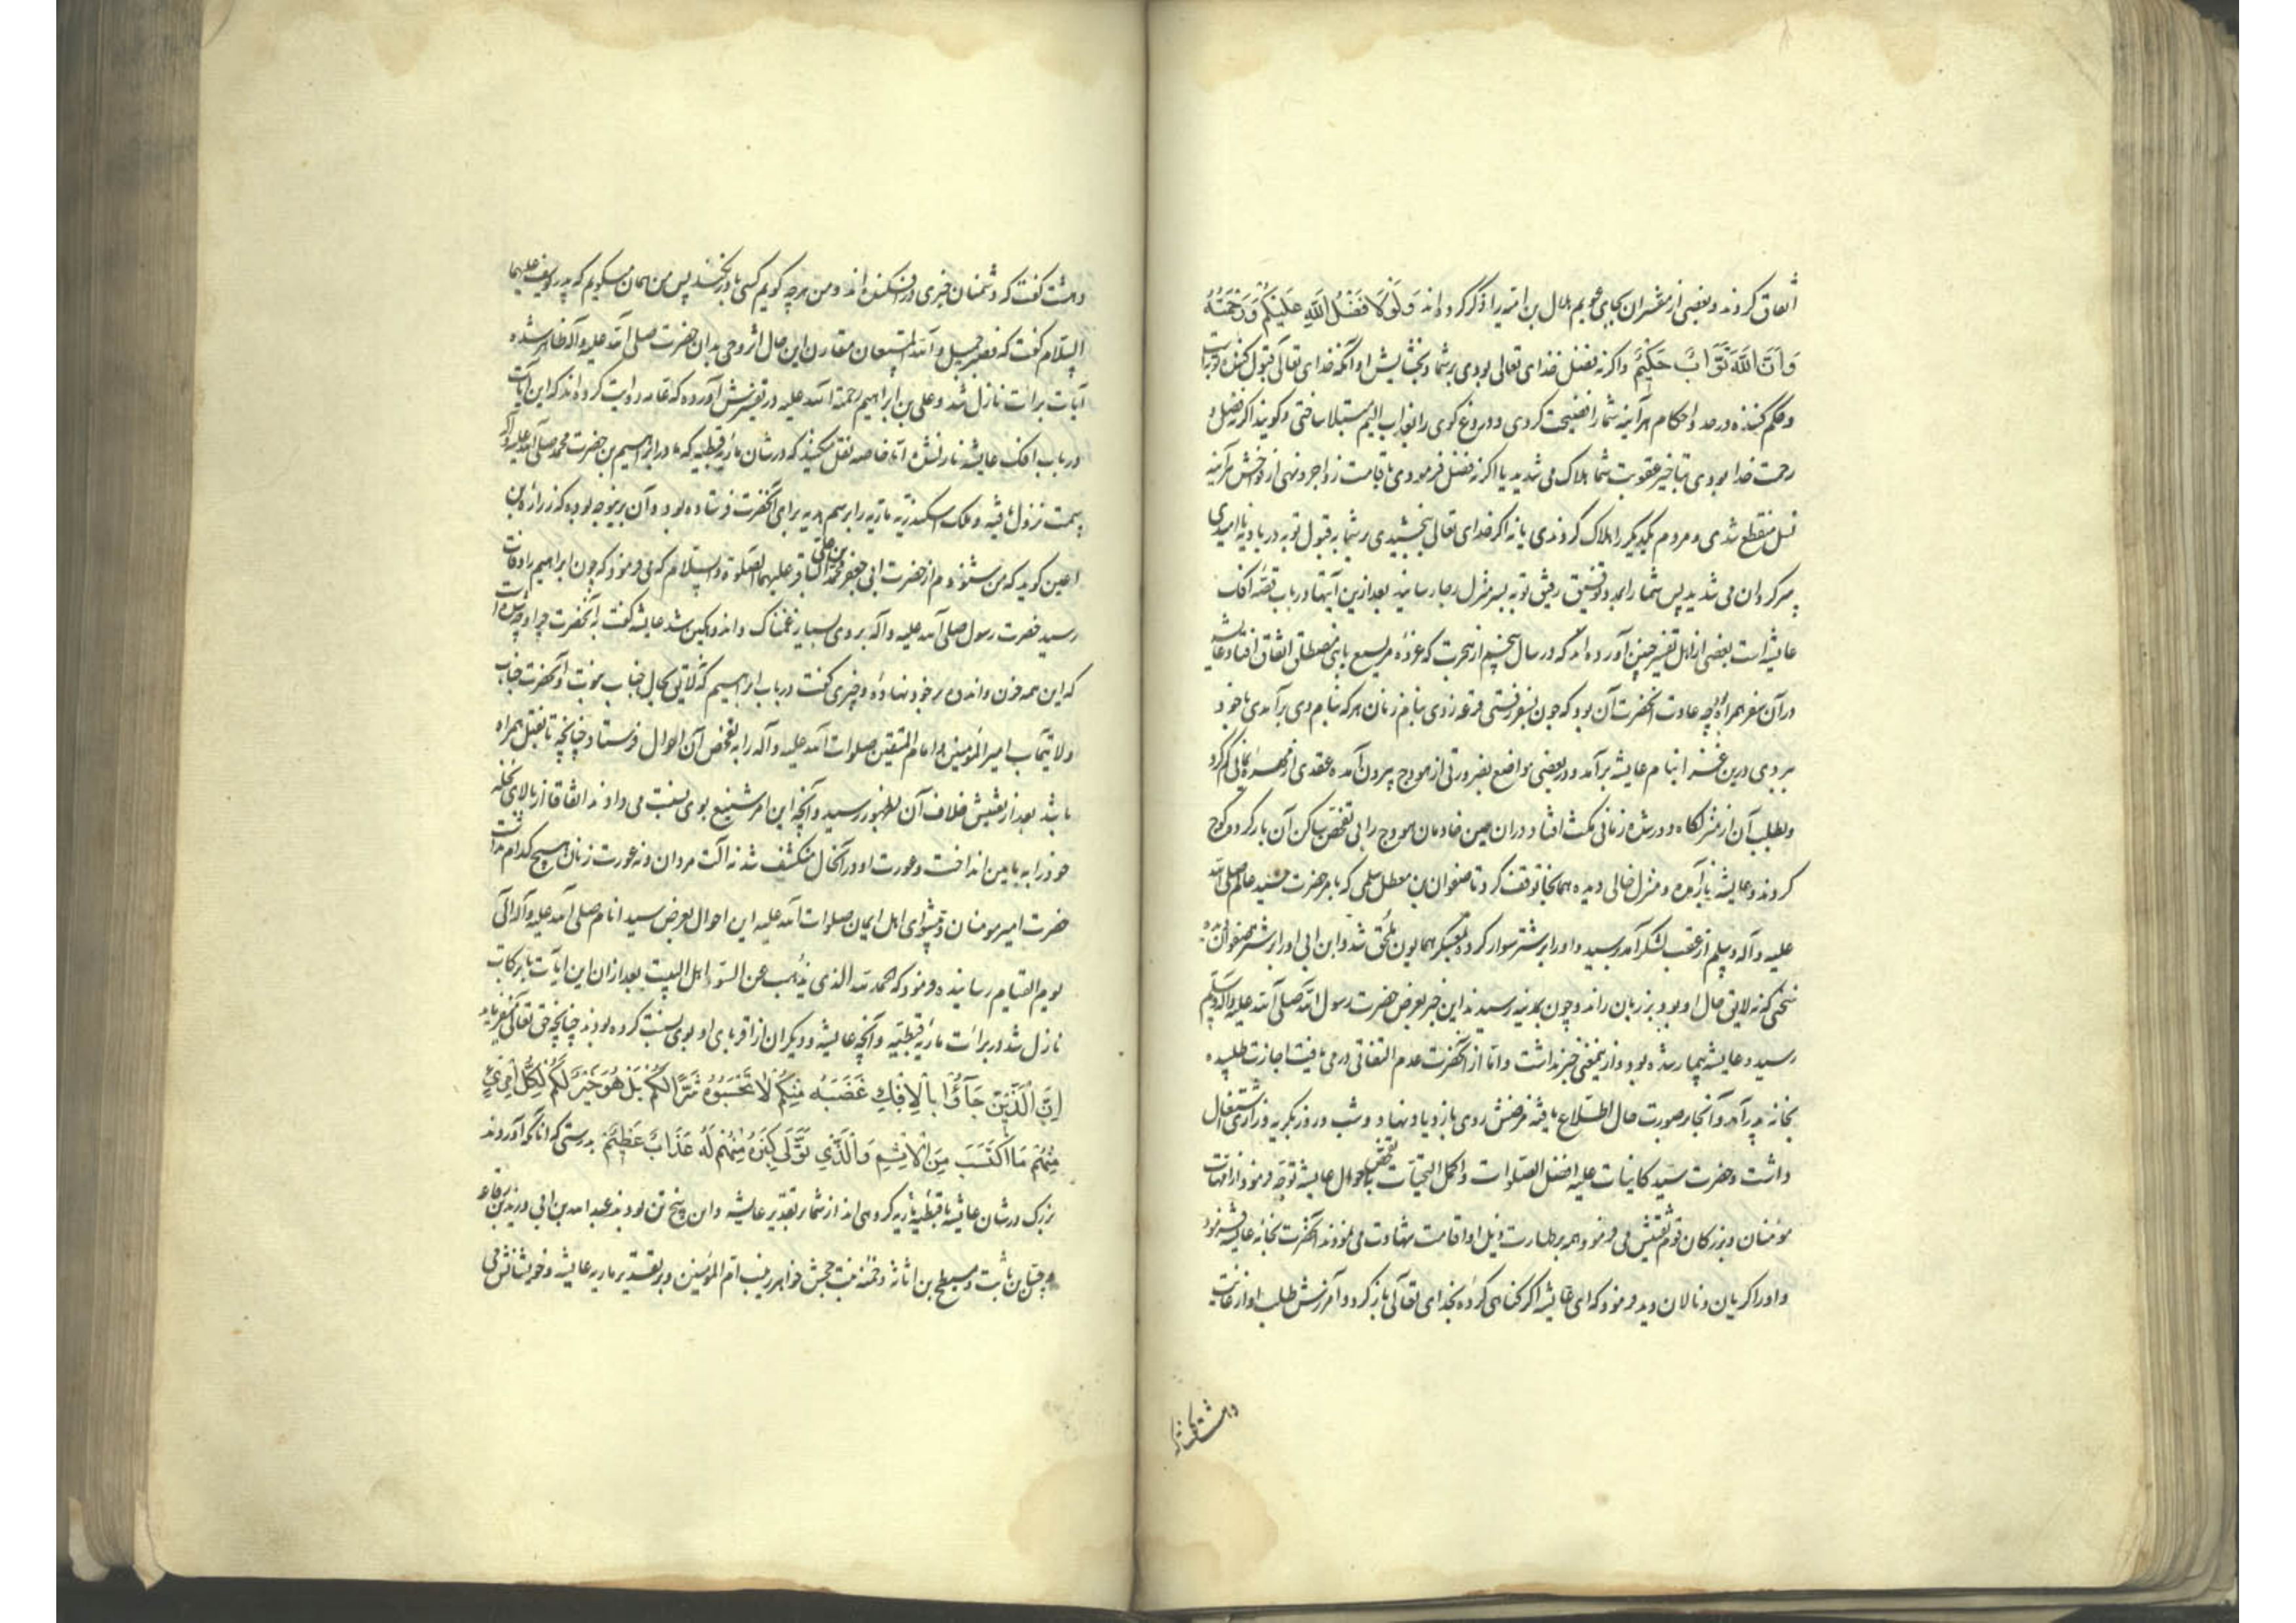 اتفاق کردند و بعضی از مفسران بجای عویم هلال بن امیه را ذکر کرده‌اند وَلَوْلَا فَضْلُ اللَّهِ عَلَيْكُمْ وَرَحْمَتُهُ
وَأَنَّ اللَّهَ تَوَّابٌ حَكِيمٌ و اگر نه فضل خدای تعالی بودی بر شما و بخشایش او و آنکه خدای تعالی قبول کننده توبه است
و حکم کننده در حد و احکام هر آینه شما را فضیحت کردی و دروغ کوی را بعذاب الیم مبتلا ساختی و کویند اگر نه فضل و
رحمت خدا بودی بتاخیر عقوبت شما هلاک می شدید یا اگر نه فضل فرمودی باقامت زواجر و نهی از فواحش هر آینه
نسل منقطع شدی و مردم یکدیگر را هلاک کردندی یا نه اگر خدای تعالی بخشیدی بر شما به قبول توبه در بادیه ناامیدی
سر کردان می شدید پس شما را بمدد توفیق رفیق توبه بسر منزل رجا رسانید بعد ازین آیتها در باب قصه افک
عایشه است بعضی از اهل تفسیر چنین آورده اند که در سال پنجم از هجرت که غزوه مریسیع با بنی مصطلق اتفاق افتاد عایشه
در آن سفر همراه بود چه عادت آنحضرت آن بود که چون بسفر رفتی قرعه زدی بنام زنان هر که بنام وی بر آمدی با خود
بردی درین غزا بنام عایشه بر آمد و در بعضی مواضع بضرورتی از هودج بیرون آمده عقدی از مهره یمانی کم کرد
و بطلب آن از منزلکاه دور شد زمانی مکث افتاد در آن حین خادمان هودج را بی تفحص ساکن آن بار کرده کوچ
کردند و عایشه باز آمده و منزل خالی دیده همانجا توقف کرد تا صفوان بن معطل سلمی که بامر حضرت سید عالم صلی الله
علیه و آله و سلم از عقب لشکر آمد رسید و او را بر شتر سوار کرده بمعسکر همایون ملحق شد و ابن ابی او را بر شتر صفوان دیده
سخنی که نه لایق حال او بود بر زبان راند و چون بمدینه رسیدند این خبر بعرض حضرت رسول الله صلی الله علیه و آله و سلم
رسید و عایشه بیمار شده بود و ازینمعنی خبر نداشت و اما از آنحضرت عدم التفاتی در می یافت اجازت طلبیده
بخانه پدر آمد و آنجا بر صورت حال اطلاع یافته مرضش روی بازدیاد نهاد و شب و روز بکریه و زاری اشتغال
داشت و حضرت سید کاینات علیه افضل الصلوات و اکمل التحیات بتفحص احوال عایشه توجه فرمود از امهات
مومنان و بزرکان قوم تفتیش می فرمود و همه بر طهارت ذیل او اقامت شهادت می نمودند آنحضرت بخانه عایشه تشریف فرمود
و او را کریان و نالان دید فرمود که ای عایشه اگر کناهی کرده بخدای تعالی باز کرد و آمرزش طلب او از غایت
دهشت گفت که
دهشت گفت که دشمنان خبری در افکنده اند و من هر چه کویم کسی باور نکند پس من همان میکویم که پدر یوسف علیهما
السلام گفت که فصبر جمیل و الله المستعان مقارن این حال اثر وحی بدان حضرت صلی الله علیه و آله ظاهر شده
آیات برائت نازل شد و علی بن ابراهیم رحمة الله علیه در تفسیرش آورده که عامه روایت کرده اند که این آیات
در باب افک عایشه نازلشده اما خاصه نقل میکنند که در شان ماریه قبطیه که مادر ابراهیم بن حضرت محمد صلی الله علیه و آله
سمت نزول یافته و ملک اسکندریه ماریه را برسم هدیه برای آنحضرت فرستاده بود و آن برینوجه بوده که زراره بن
اعین کوید که من شنودم از حضرت ابی جعفر محمد بن علی الباقر علیهما الصلوة و السلام که می فرمود که چون ابراهیم را وفات
رسید حضرت رسول صلی الله علیه و آله بر وی بسیار غمناک و اندوهکین شد عایشه گفت به آنحضرت چرا
که این همه حزن و اندوه بر خود نهاده و چیزی گفت در باب ابراهیم که لایق بحال جناب نبوت و آنحضرت جناب
ولایتمآب امیر المؤمنین و امام المتقین صلوات الله علیه و آله را به تفحص آن احوال فرستاد چنانچه تا بقتل همراه
باشد بعد از تفتیش خلاف آن بظهور رسید و آنچه این امر شنیع بوی نسبت می دادند اتفاقا از بالای نخله
خود را به پایین انداخت و عورت او در آنحال منکشف شد نه آلت مردان و نه عورت زنان هیچ کدام نداشت
حضرت امیر مومنان و پیشوای اهل ایمان صلوات الله علیه این احوال بعرض سید انام صلی الله علیه و آله الی
یوم القیام رسانیده فرمود که الحمد لله الذی یذهب عن السوء اهل البیت بعد از آن این آیات بابرکات
نازل شد در برائت ماریه قبطیه و آنچه عایشه و دیگران از اقربای او بوی نسبت کرده بودند چنانچه حق تعالی میفرماید
إِنَّ الَّذِينَ جَاؤُا بِالْإِفْكِ عُصْبَةٌ مِنْكُمْ لَا تَحْسَبُوهُ شَرًّا لَكُمْ بَلْ هُوَ خَيْرٌ لَكُمْ لِكُلِّ امْرِئٍ
مِنْهُمْ مَا اكْتَسَبَ مِنَ الْإِثْمِ وَالَّذِي تَوَلَّى كِبْرَهُ مِنْهُمْ لَهُ عَذَابٌ عَظِيمٌ بدرستی که آنانکه آوردند
بزرک در شان عایشه یا قبطیه ماریه کروهی اند از شما بر تقدیر عایشه و این پنج تن بودند عبد الله بن ابی و زید بن رفاعه
و حسان بن ثابت و مسطح بن اثاثه و حمنه بنت جحش خواهر زینب ام المؤمنین و بر تقدیر ماریه عایشه و خویشانش می